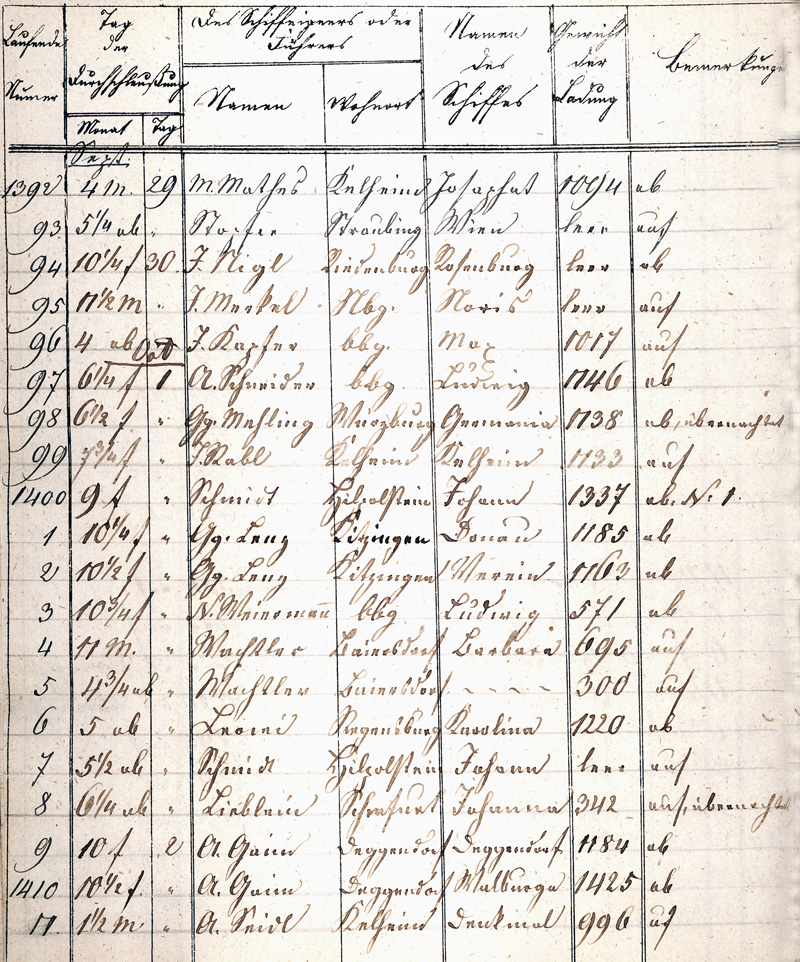 Laufende Numer | Tag der Durchschleußung | Des Schiffeigners oder Führers | Namen des Schiffes | Gewicht der Ladung | Bemerkungen
Monat | Tag | Namen | Wohnort
Sept.
1392 4 M. 29 M. Mathes Kelheim Josaphat 1094 ab
93 5 1/4 ab " Straubing Wien leer auf
94 10 1/4 f 30 J. Nigl Riedenburg Rosenburg leer ab
95 11 1/2 M " J. Merkel Nbg. Noris leer auf
96 4 ab J. Kapfer bbg. Max 1017 auf
Oct
97 6 1/4 f 1 A. Schneider bbg Ludwig 1146 ab
98 6 1/2 f " Gg. Mehling Würzburg Germania 1138 ab, übernachtet
99 7 3/4 f " J. Rabl Kelheim Kelheim 1133 auf
1400 9 f " Schmidt Hilpolstein Johann 1337 ab. N. 1.
1 10 1/4 f " Gg. Lenz Kitzingen Donau 1185 ab
2 10 1/2 f " Gg. Lenz Kitzingen Verein 1163 ab
3 10 3/4 f " N. Weiermann bbg Ludwig 571 ab
4 11 M. " Wachtler Baiersdorf Barbara 695 auf
5 4 3/4 ab " Wachtler Baiersdorf - - - - 300 auf
6 5 ab " Regensburg Karolina 1220 ab
7 5 1/2 ab " Schmidt Hilpolstein Johann leer auf
8 6 1/4 ab " Lieblein Johanna 342 auf, übernachtet
9 10 f 2 A. Gaim Deggendorf Deggendorf 1184 ab
1410 10 1/2 f. " A. Gaim Deggendorf Walburga 1425 ab
11. 1 1/2 M " A. Seidl Kelheim Denkmal 996 auf